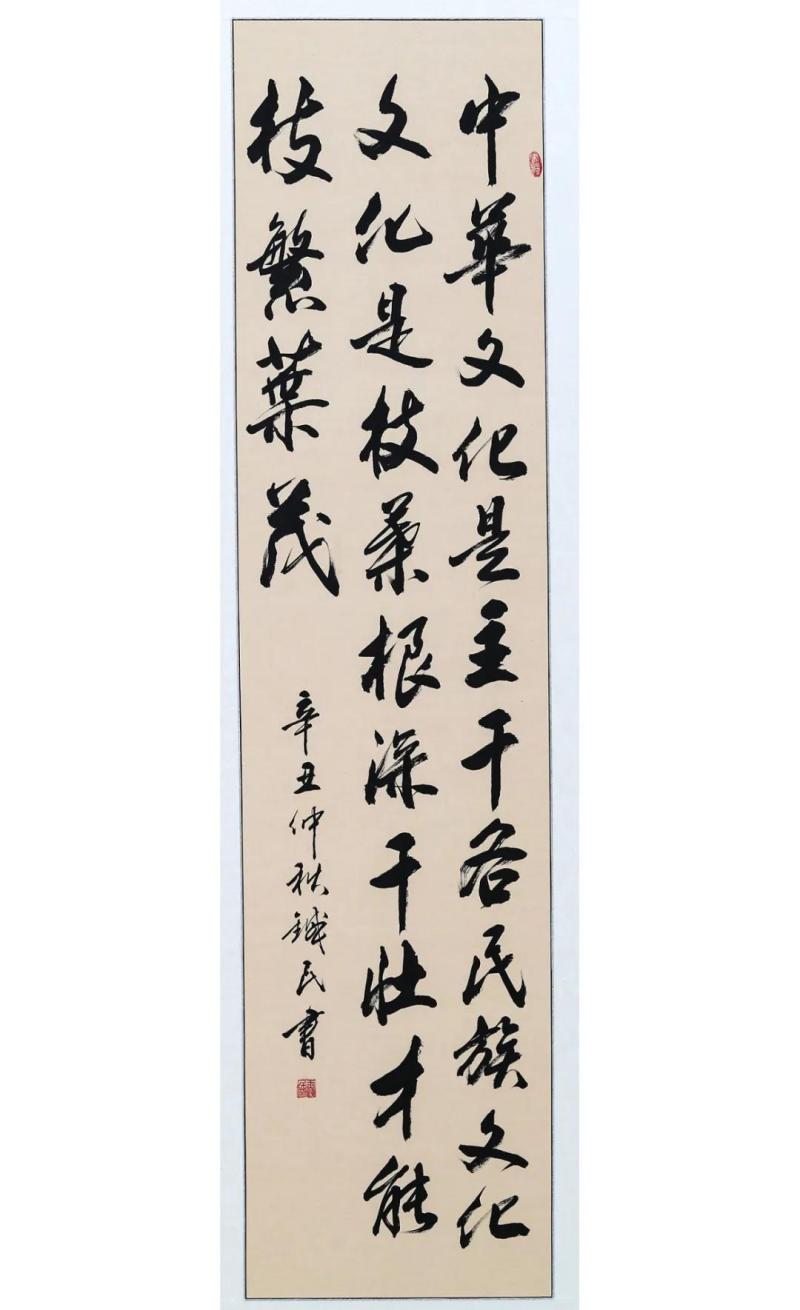 中華文化是主干各民族文化
文化是枝葉根深干壮才能
枝繁葉茂
辛丑仲秋鐵民書